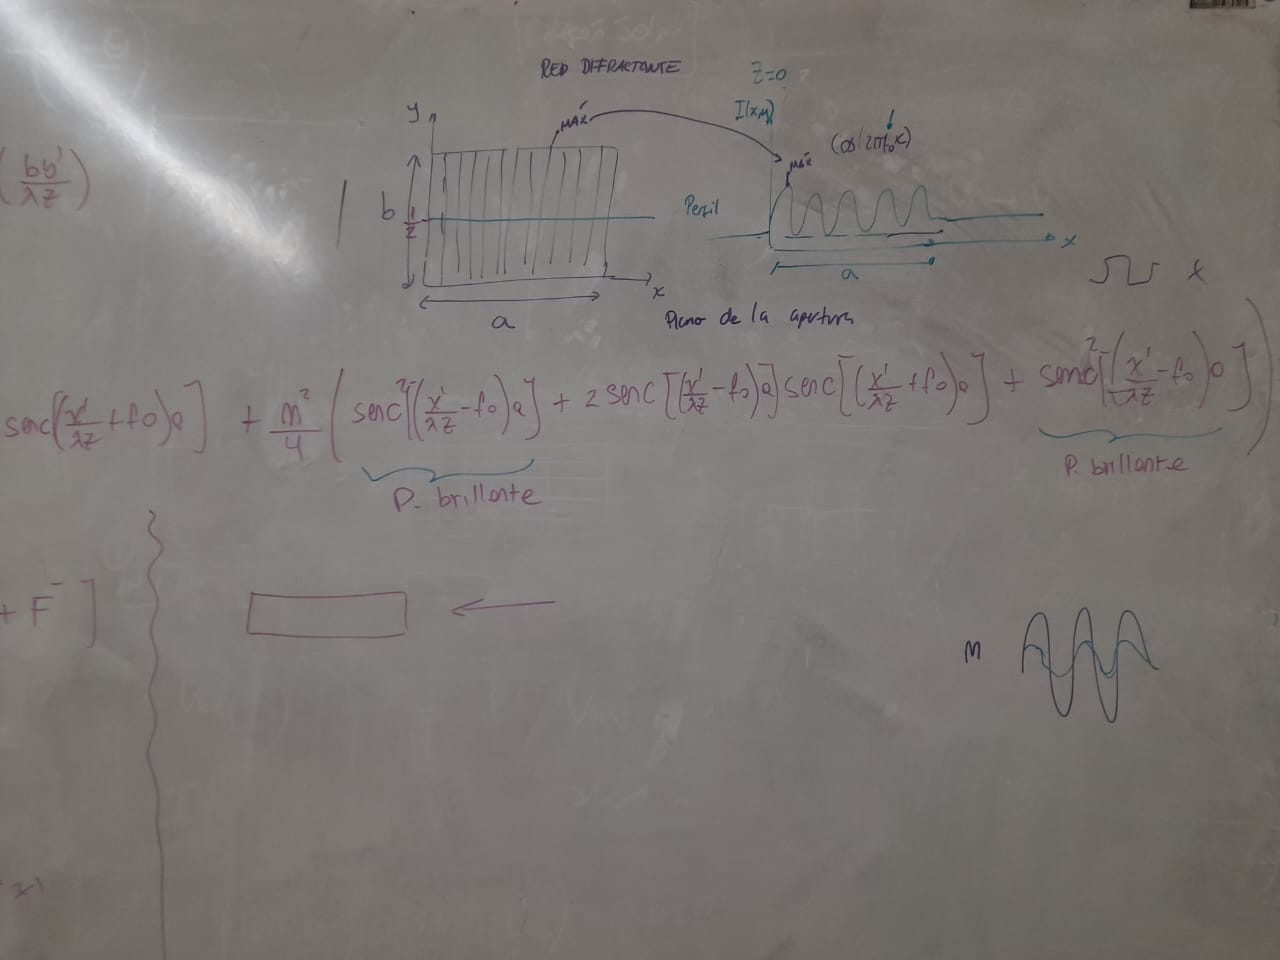 RED DIFRACTANTE
Z=0
I(x,y)
y
MÁX
cos(2πf₀x)
MÁX
(bb'/λz)
b
1/2
Perfil
x
a
x
a
Plano de la apertura
x
senc(x'/λz + f0)a] + m²/4 (senc²[(x'/λz - f0)a] + 2 senc[(x'/λz - f0)a] senc[(x'/λz + f0)a] + senc²[(x'/λz - f0)a])
P. brillante
P. brillante
+ F⁻ ]
m